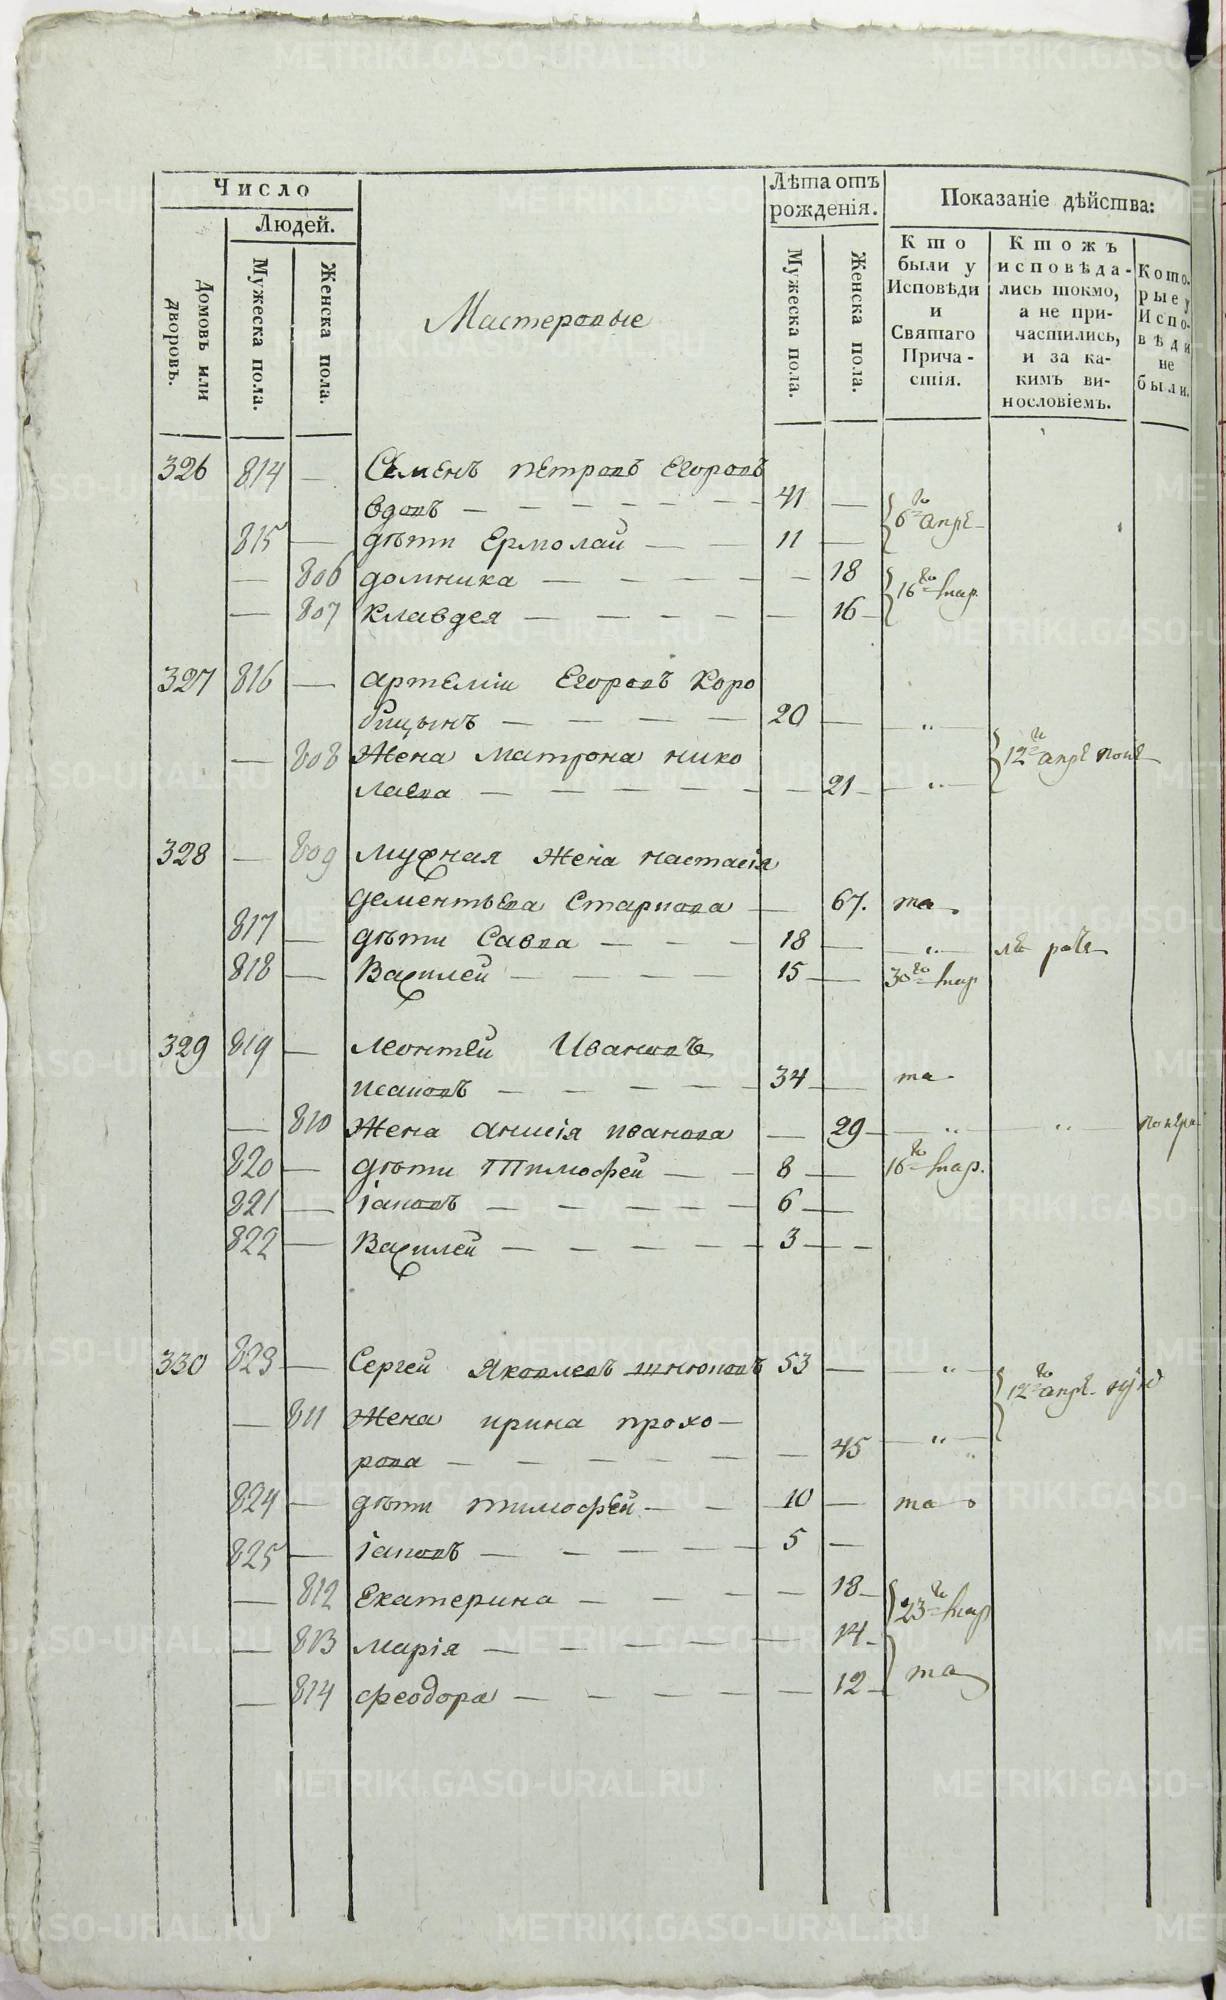 Число
Людей.
Домовъ или дворовъ.
Мужеска пола.
Женска пола.
Мастеровые
Лѣта отъ рожденія.
Мужеска пола.
Женска пола.
Показаніе дѣйства:
Кто были у Исповѣди и Святаго Причастія.
Ктожъ исповѣдались токмо, а не причастились, и за какимъ винословіемъ.
Которые у Исповѣди не были.
326 814 — Семенъ Петровъ Егоровъ
вдовъ — 41 —
6го апре
815 — дѣти Ермолай — 11 —
— 806 домника — 18
16го мар.
— 807 клавдея — 16
327 816 — артемiи Егоровъ Коро
бицынъ — 20 — „
— 808 Жена матрона нико
лаева — 21 „
12го апре
328 — 809 Жена настасія
дементьева — 67. та
817 — дѣти Савва — 18 — „
818 — Василей — 15 — 30го мар
329 819 — леонтей Ивановъ
— 34 — та
— 810 Жена анисія иванова — 29 — „ — „
820 — дѣти Тимофей — 8 — 16го мар.
821 — іаковъ — 6 —
822 — Василей — 3 —
330 823 — Сергей Яковлевъ 53 — „
12го апре.
— 811 Жена ирина прохо-
рова — 45 „
824 — дѣти тимофей — 10 — та
825 — іаковъ — 5 —
— 812 Екатерина — 18
23го мар
— 813 марія — 14
— 814 феодора — 12 та
METRIKI.GASO-URAL.RU